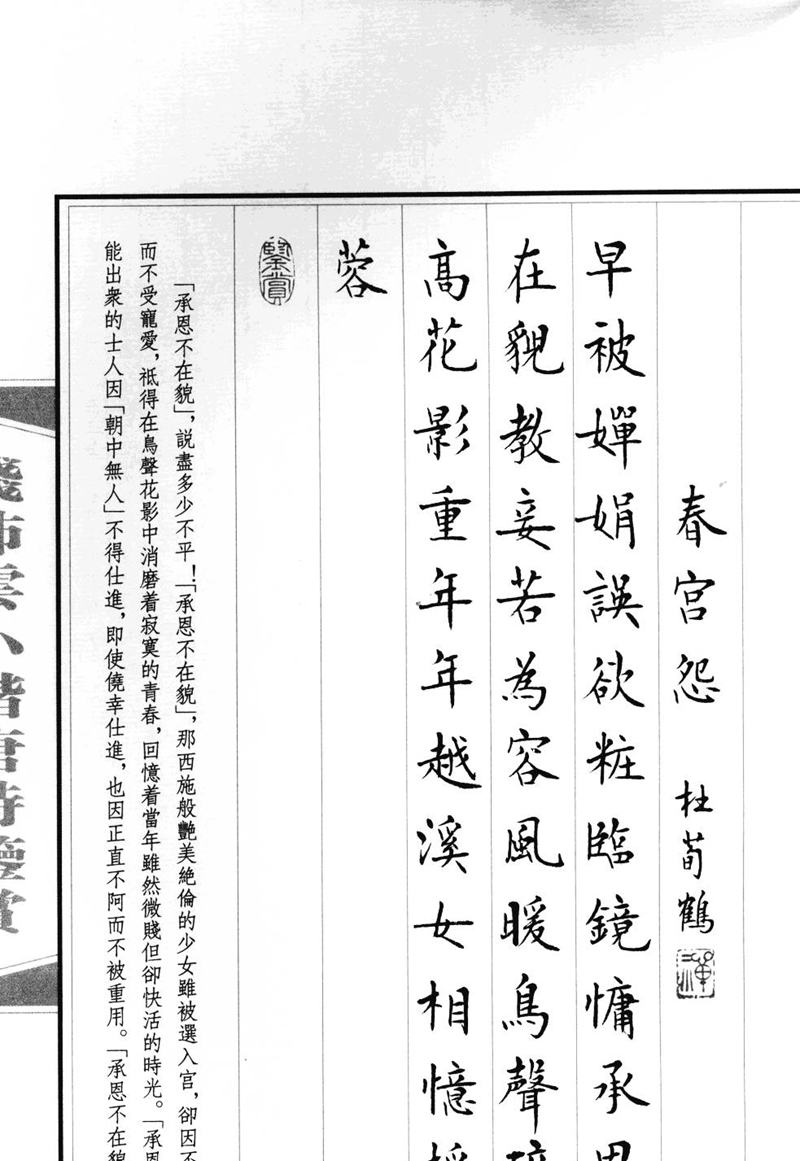 春宮怨 杜荀鶴
早被嬋娟誤欲粧臨鏡慵承恩
在貌教妾若為容風暖鳥聲碎
高花影重年年越溪女相憶採
蓉
鑒賞
「承恩不在貌」，説盡多少不平！「承恩不在貌」，那西施般艷美絶倫的少女雖被選入宫，卻因不
而不受寵愛，祗得在鳥聲花影中消磨着寂寞的青春，回憶着當年雖然微賤但卻快活的時光。「承恩
能出衆的士人因「朝中無人」不得仕進，即使僥幸仕進，也因正直不阿而不被重用。「承恩不在貌
小楷唐詩鑒賞